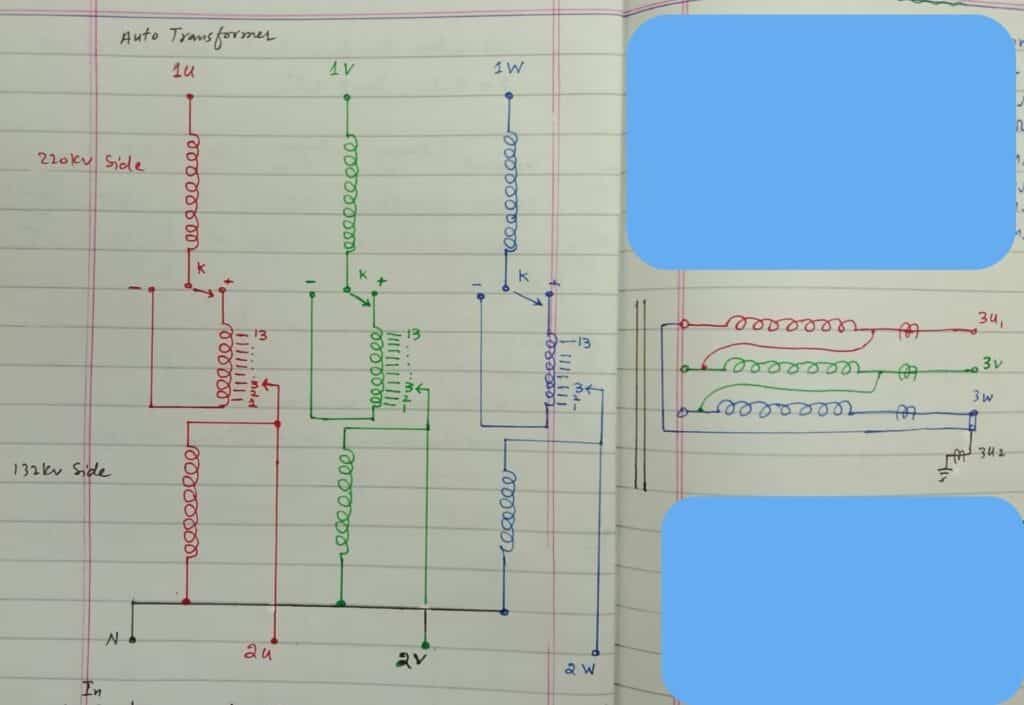 Auto Transformer
1U 1V 1W
220kv Side
K K K
- + - + - +
13 13 13
3 3 3
2 2
1 1 1
132kv Side
N
2U 2V 2W
In
3U1
3V
3W
3U2